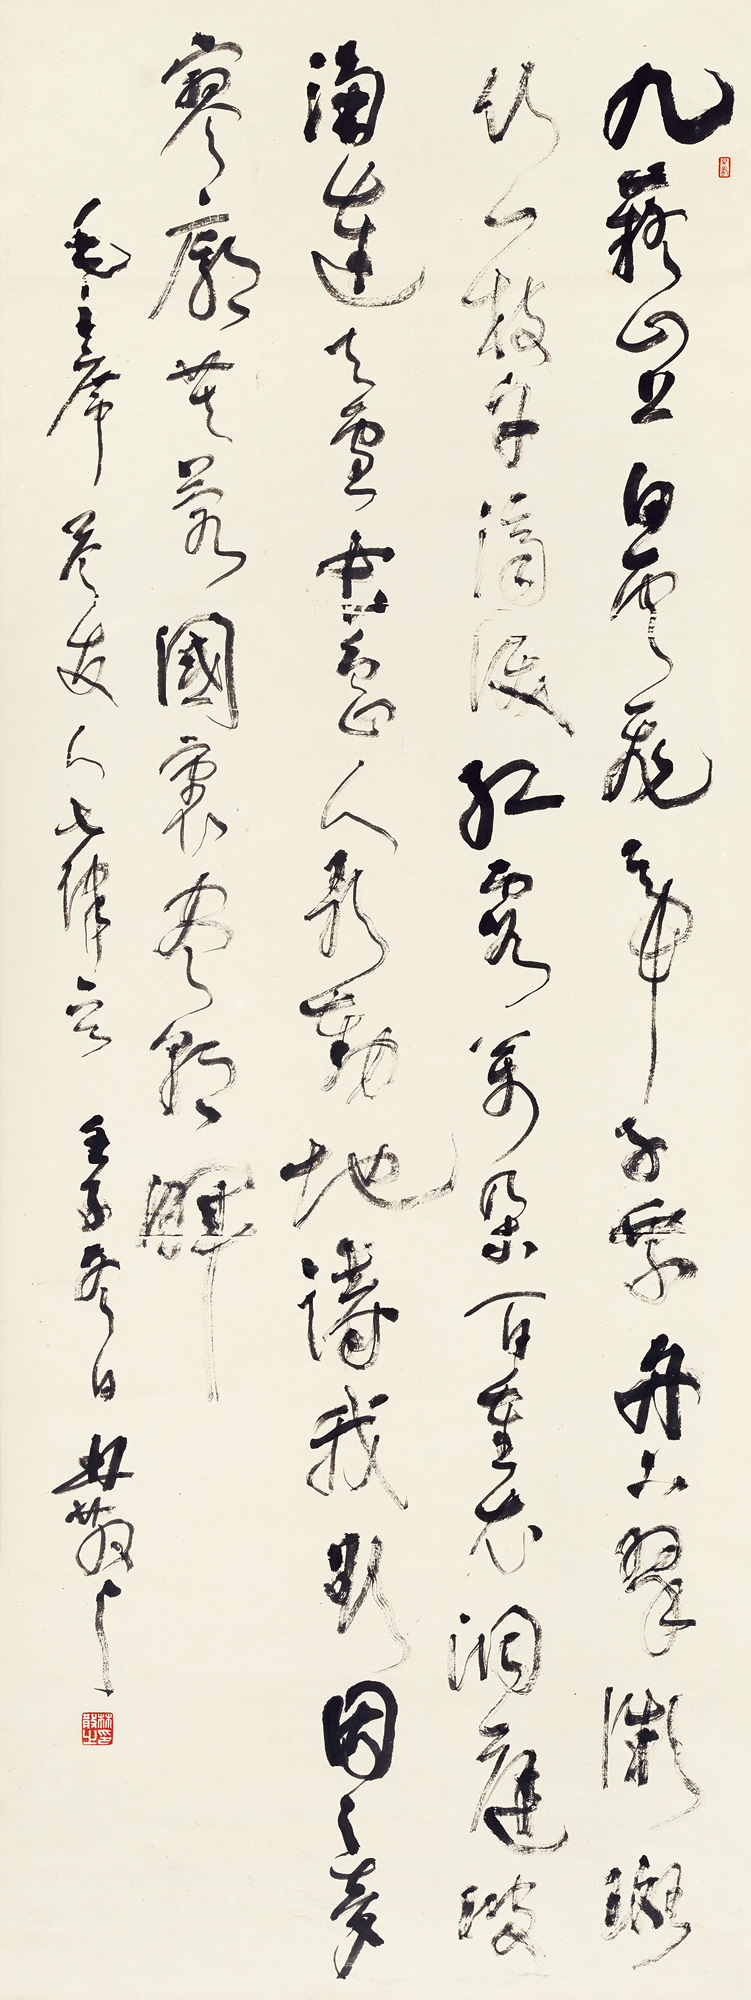 九嶷山上白雲飛帝子乘風下翠微斑
竹一枝千滴淚紅霞萬朵百重衣洞庭波
涌連天雪長島人歌動地詩我欲因之夢
寥廓芙蓉國裏盡朝暉
毛主席答友人七律 壬子冬日 林散耳
林散之印